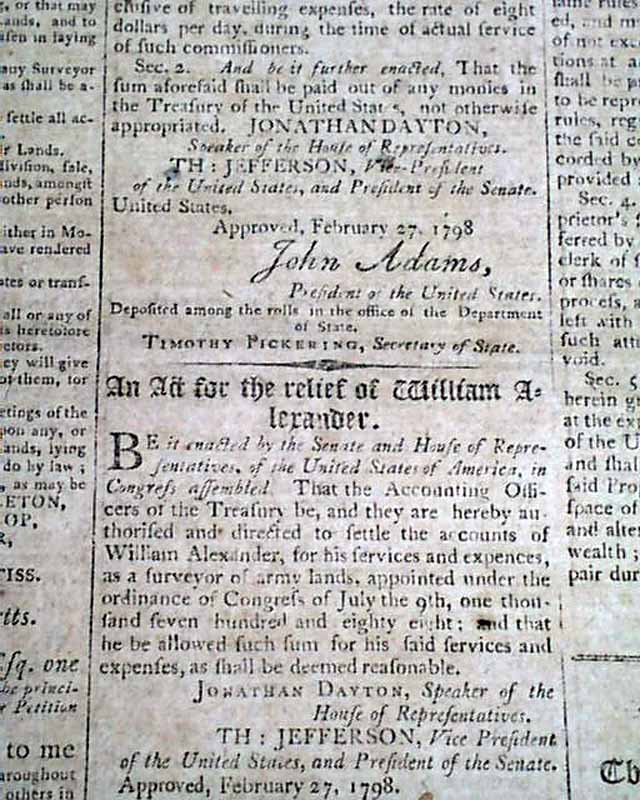 g, or that may
ands, and to
asen in laying
any Surveyor
as shall be a-
settle all ac-
ir Lands.
division, sale,
ands, amongst
other person
either in Mo-
ave rendered
ates or transf-
all or any of
is heretofore
ectors.
ey will give
of them, for
eetings of the
pon any, or
ands, lying
do by law ;
, as may be
LETON,
OP,
R,
TISS.
tts.
sq. one
be princi-
r Petition
to me
aroughout
others in
clusive of travelling expenses, the rate of eight
dollars per day, during the time of actual service
of such commissioners.
Sec. 2. And be it further enacted, That the
sum aforesaid shall be paid out of any monies in
the Treasury of the United States, not otherwise
appropriated. JONATHAN DAYTON,
Speaker of the House of Representatives.
TH : JEFFERSON, Vice-President
of the United States, and President of the Senate.
United States.
Approved, February 27, 1798
John Adams,
President of the United States.
Deposited among the rolls in the office of the Department
of State.
TIMOTHY PICKERING, Secretary of State.
An Act for the relief of William A-
lexander.
BE it enacted by the Senate and House of Repre-
sentatives, of the United States of America, in
Congress assembled. That the Accounting Offi-
cers of the Treasury be, and they are hereby au-
thorised and directed to settle the accounts of
William Alexander, for his services and expences,
as a surveyor of army lands, appointed under the
ordinance of Congress of July the 9th, one thou-
sand seven hundred and eighty eight ; and that
he be allowed such sum for his said services and
expenses, as shall be deemed reasonable.
JONATHAN DAYTON, Speaker of the
House of Representatives.
TH : JEFFERSON, Vice President
of the United States, and President of the Senate.
Approved, February 27, 1798.
ed, and m
of not exc
tions at a
shall be p
to be repr
rules, reg
the said c
corded by
provided
Sec. 4.
prietor's
ferred by
clerk of
or shares
process, a
left with
such atte
void.
Sec. 5
herein gr
at the exp
of the U
and shal
said Prop
space of
and alter
wealth ;
pair dur
Th